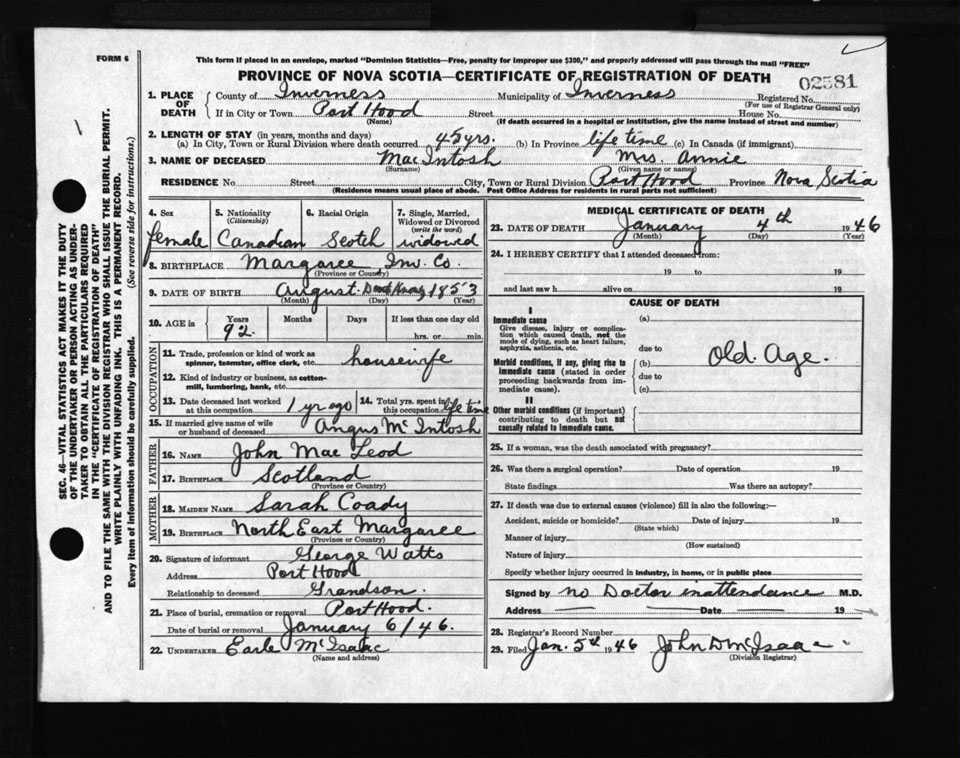 FORM 6
This form if placed in an envelope, marked "Dominion Statistics—Free, penalty for improper use $300," and properly addressed will pass through the mail "FREE"
PROVINCE OF NOVA SCOTIA—CERTIFICATE OF REGISTRATION OF DEATH
02581
1. PLACE OF DEATH
County of Inverness Municipality of Inverness Registered No.
(For use of Registrar General only)
If in City or Town Port Hood Street House No.
(Name) (If death occurred in a hospital or institution, give the name instead of street and number)
2. LENGTH OF STAY (in years, months and days)
(a) In City, Town or Rural Division where death occurred 45 yrs. (b) In Province life time (c) In Canada (if immigrant)
3. NAME OF DECEASED Mac Intosh Mrs. Annie
(Surname) (Given name or names)
RESIDENCE No. Street City, Town or Rural Division Port Hood Province Nova Scotia
(Residence means usual place of abode. Post Office Address for residents in rural parts not sufficient)
4. Sex
female
5. Nationality
(Citizenship)
Canadian
6. Racial Origin
Scotch
7. Single, Married, Widowed or Divorced
(write the word)
widowed
8. BIRTHPLACE Margaree Inv. Co.
(Province or Country)
9. DATE OF BIRTH August 1853
(Month) (Day) (Year)
10. AGE in
Years Months Days If less than one day old
92 hrs. or min.
OCCUPATION
11. Trade, profession or kind of work as spinner, teamster, office clerk, etc. housewife
12. Kind of industry or business, as cotton-mill, lumbering, bank, etc.
13. Date deceased last worked at this occupation 1 yr ago
14. Total yrs. spent in this occupation life time
15. If married give name of wife or husband of deceased Angus McIntosh
FATHER
16. NAME John Mac Leod
17. BIRTHPLACE Scotland
(Province or Country)
MOTHER
18. MAIDEN NAME Sarah Coady
19. BIRTHPLACE North East Margaree
(Province or Country)
20. Signature of informant George Watts
Address Port Hood
Relationship to deceased Grandson.
21. Place of burial, cremation or removal Port Hood.
Date of burial or removal January 6/46.
22. UNDERTAKER Earle McIsaac
(Name and address)
MEDICAL CERTIFICATE OF DEATH
23. DATE OF DEATH January 4th 1946
(Month) (Day) (Year)
24. I HEREBY CERTIFY that I attended deceased from:
19 to 19
and last saw h alive on 19
CAUSE OF DEATH
I
Immediate cause
Give disease, injury or complication which caused death, not the mode of dying, such as heart failure, asphyxia, asthenia, etc.
(a)
due to
Morbid conditions, if any, giving rise to immediate cause (stated in order proceeding backwards from immediate cause).
(b) Old. Age.
due to
(c)
II
Other morbid conditions (if important) contributing to death but not causally related to immediate cause.
25. If a woman, was the death associated with pregnancy?
26. Was there a surgical operation? Date of operation 19
State findings Was there an autopsy?
27. If death was due to external causes (violence) fill in also the following:—
Accident, suicide or homicide? Date of injury 19
(State which)
Manner of injury
(How sustained)
Nature of injury
Specify whether injury occurred in industry, in home, or in public place
Signed by no Doctor in attendance M.D.
Address — Date — 19 —
28. Registrar's Record Number
29. Filed Jan. 5th 1946 John D McIsaac
(Division Registrar)
SEC. 46—VITAL STATISTICS ACT MAKES IT THE DUTY
OF THE UNDERTAKER OR PERSON ACTING AS UNDER-
TAKER TO OBTAIN ALL THE PARTICULARS REQUIRED
IN THE "CERTIFICATE OF REGISTRATION OF DEATH"
AND TO FILE THE SAME WITH THE DIVISION REGISTRAR WHO SHALL ISSUE THE BURIAL PERMIT.
WRITE PLAINLY WITH UNFADING INK. THIS IS A PERMANENT RECORD.
Every item of information should be carefully supplied. (See reverse side for instructions.)